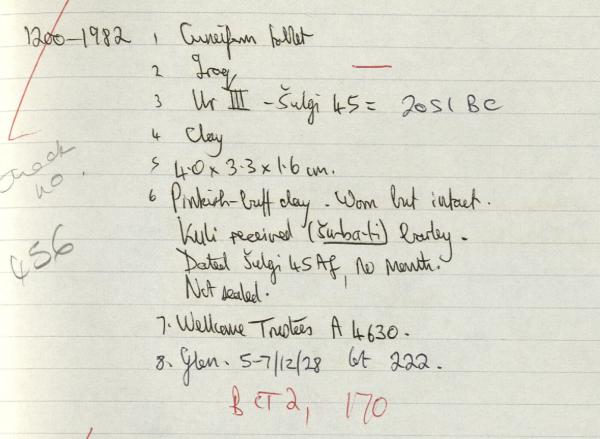 1200–1982 1 Cuneiform tablet
2 Iraq
3 Ur III – Šulgi 45 = 2051 BC
4 Clay
5 4.0 x 3.3 x 1.6 cm.
6 Pinkish-buff clay. Worn but intact.
Kuli received (šu ba-ti) barley.
Dated Šulgi 45Af, no month.
Not sealed.
7. Wellcome Trustees A 4630.
8. Glen. 5-7/12/28 lot 222.
check
no.
456
BCT 2, 170